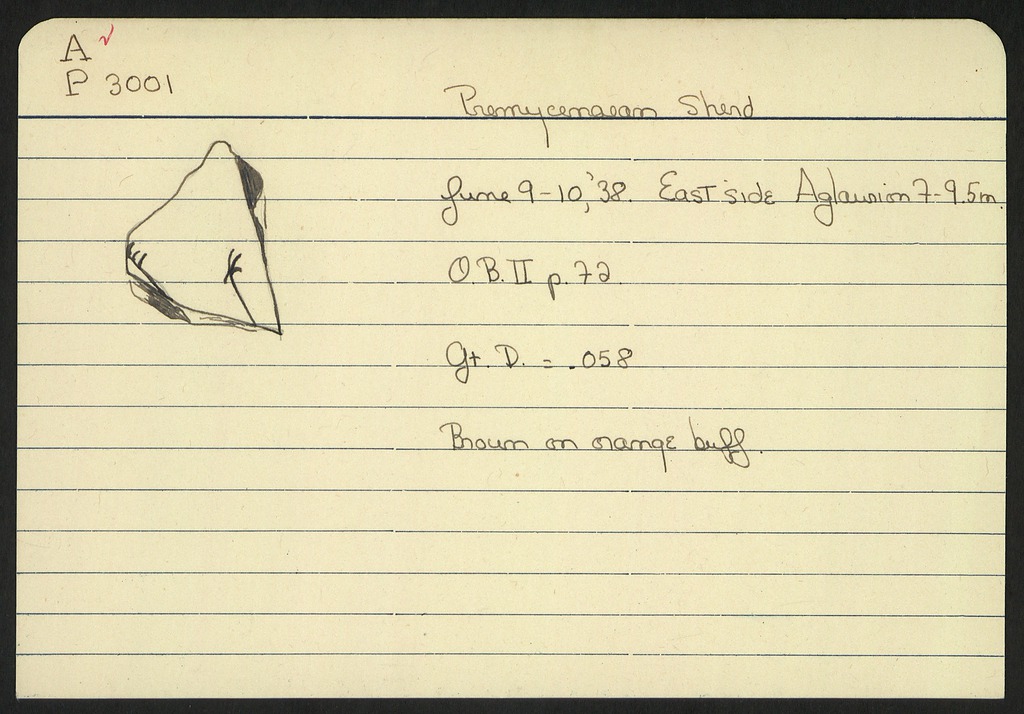 A ✓
P 3001
Premycenaean Sherd
June 9-10, '38. East side Aglaurion 7-9.5m.
O.B. II p. 72
Gt. D. = .058
Brown on orange buff.